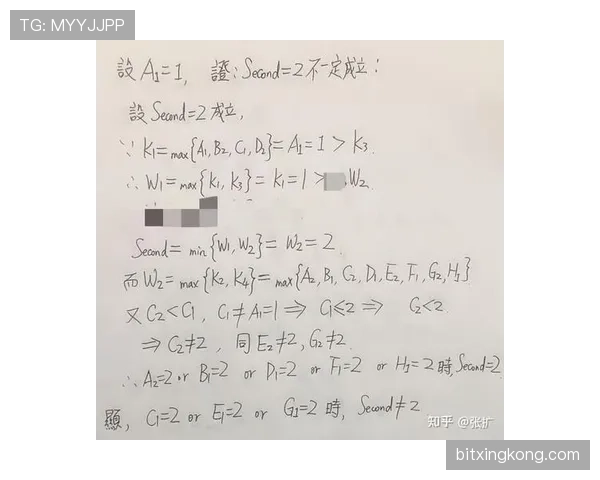 TG: MYYJJPP
設 A1=1, 證:Second=2不一定成立:
設Second=2成立,
∵ K1=max{A1,B2,C1,D2}=A1=1>K3.
∴ W1=max{K1,K3}=K1=1> W2
Second=min{W1,W2}=W2=2
而W2=max{K2,K4}=max{A2,B1,C2,D1,E2,F1,G2,H1}
又C2<C1, C1≠A1=1⇒C1≤2⇒ C2<2
⇒C2≠2, 同E2≠2,G2≠2.
∴A2=2 or B1=2 or D1=2 or F1=2 or H1=2時,Second=2
顯, C1=2 or E1=2 or G1=2 時, Second≠2
知乎 @张扩
bitxingkong.com